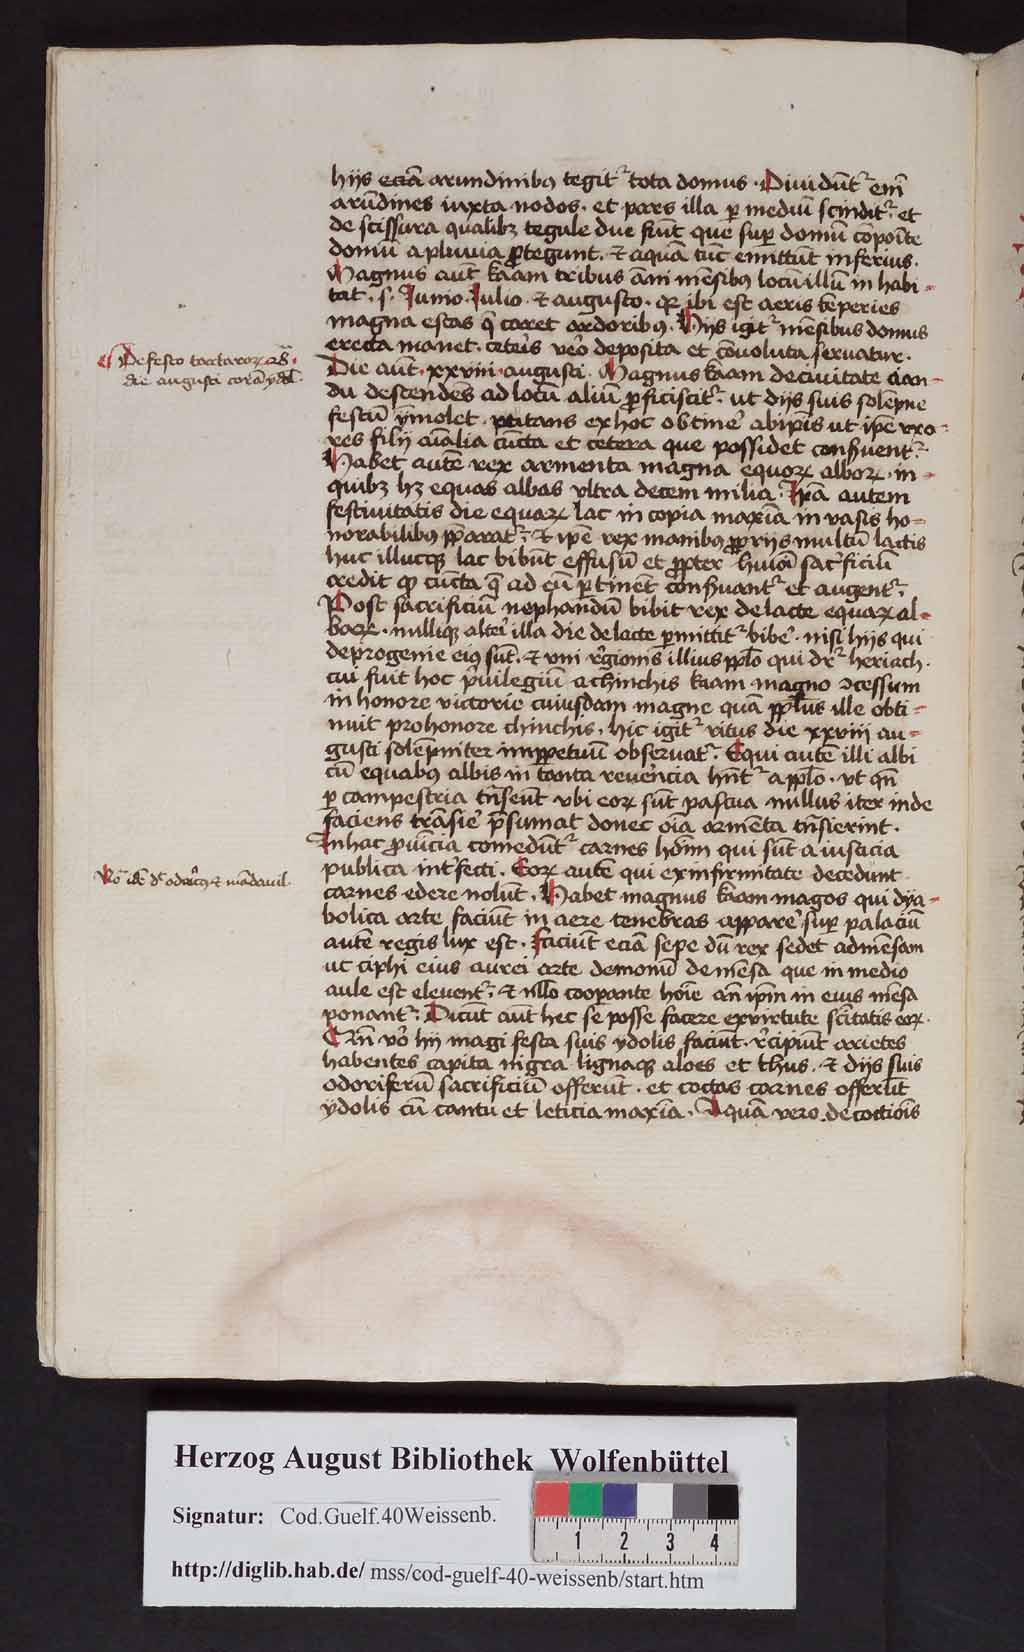 hijs eciā arundinibꝰ tegit᷑ tota domus · Diuidūt᷑ em̄
arūdines iuxta nodos · et pars illa ꝑ mediū scindit᷑ · et
de scissura qualibꝫ tegule due fiūt que suꝑ domū ꝯpoīte
domū a pluuia ꝓtegunt · ⁊ aquā tūc emittūt inferius ·
Magnus aut̄ kaam tribus āni mēsibꝰ locū illū in habi-
tat · s · Iunio · Iulio · ⁊ augusto · qꝛ ibi est aeris tēperies
magna estas q̄ caret ardoribꝰ · Hijs igit᷑ mēsibus domus
erecta manet · ceteris vero deposita et cōuoluta seruatur ·
De festo tartaroꝝ 28
die augusti corā ydol᷑
Die aūt · xxviii · augusti · Magnus kaam de ciuitate cian-
du descendēs ad locū aliū ꝓficiscit᷑ · ut dijs suis solēpne
festū ȳmolet · putans ex hoc obtinē ab ip̄is ut ip̄e vxo-
res filij aīalia cūcta et cetera que possidet conseruent᷑
Habet autē rex armenta magna equoꝝ alboꝝ · in
quibꝫ hꝫ equas albas vltra decem milia · autem
festiuitatis die equaꝝ lac in copia maxīa in vasis ho-
norabilibꝰ p̄parat᷑ · ⁊ ip̄e rex manibꝰ ꝓprijs multū lactis
huc illucqꝫ lac bibūt effusū et ꝓpter huiōi sac͛ficiū
credit ꝙ cūcta q̄ ad eū ꝑtinēt conseruant᷑ et augent᷑ ·
Post sacrificiū nephandū bibit rex de lacte equaꝝ al-
baꝝ · nulliqꝫ alteri illa die de lacte ꝑmittit᷑ bibē · nisi hijs qui
de progenie eiꝰ sūt · ⁊ vni regionis illius pp̄lo qui dr᷑ heriach ·
cui fuit hoc p͛uilegiū a chinchis kaam magno ꝯcessum
in honore victorie cuiusdam magne quā pp̄lus ille obti-
nuit pro honore chinchis · hic igit᷑ ritus die xxviii au-
gusti solēpniter imꝑpetuū obseruat᷑ · Equi autē illi albi
cū equabꝰ albis in tanta reuerēcia hn̄t᷑ a pp̄lo · vt qn̄
ꝑ campestria trāseūt vbi eoꝝ sūt pascua nullus iter inde
faciens trāsire p̄sumat donec oīa armēta trāsierint ·
In hac ꝓuīcia comedūt᷑ carnes hoīm qui sūt a iusticia
publica int͛fecti · Eoꝝ autē qui ex infirmitate decedunt
No idē de odrico ⁊ mādauil
carnes edere nolūt · Habet magnus kaam magos qui dya-
bolica arte faciūt in aere tenebras appare͛ suꝑ palaciū
autē regis lux est · Faciūt eciā sepe dū rex sedet ad mēsam
ut ciphi eius aurei arte demonū de mēsa que in medio
aule est eleuent᷑ · ⁊ nllo cooꝑante hoīe an̄ ip̄m in eius mēsa
ponant᷑ · Dicūt aūt hec se posse facere ex virtute sc̄itatis eoꝝ ·
Qn̄ vo hij magi festa suis ydolis faciūt · recipiūt arietes
habentes capita nigra lignaqꝫ aloes et thus · ⁊ dijs suis
odoriferū sacrificiū offerūt · et coctas carnes offerūt
ydolis cū cantu et leticia maxīa · Aquā vero decoctiōis
Herzog August Bibliothek Wolfenbüttel
Signatur: Cod.Guelf.40Weissenb.
1 2 3 4
http://diglib.hab.de/ mss/cod-guelf-40-weissenb/start.htm